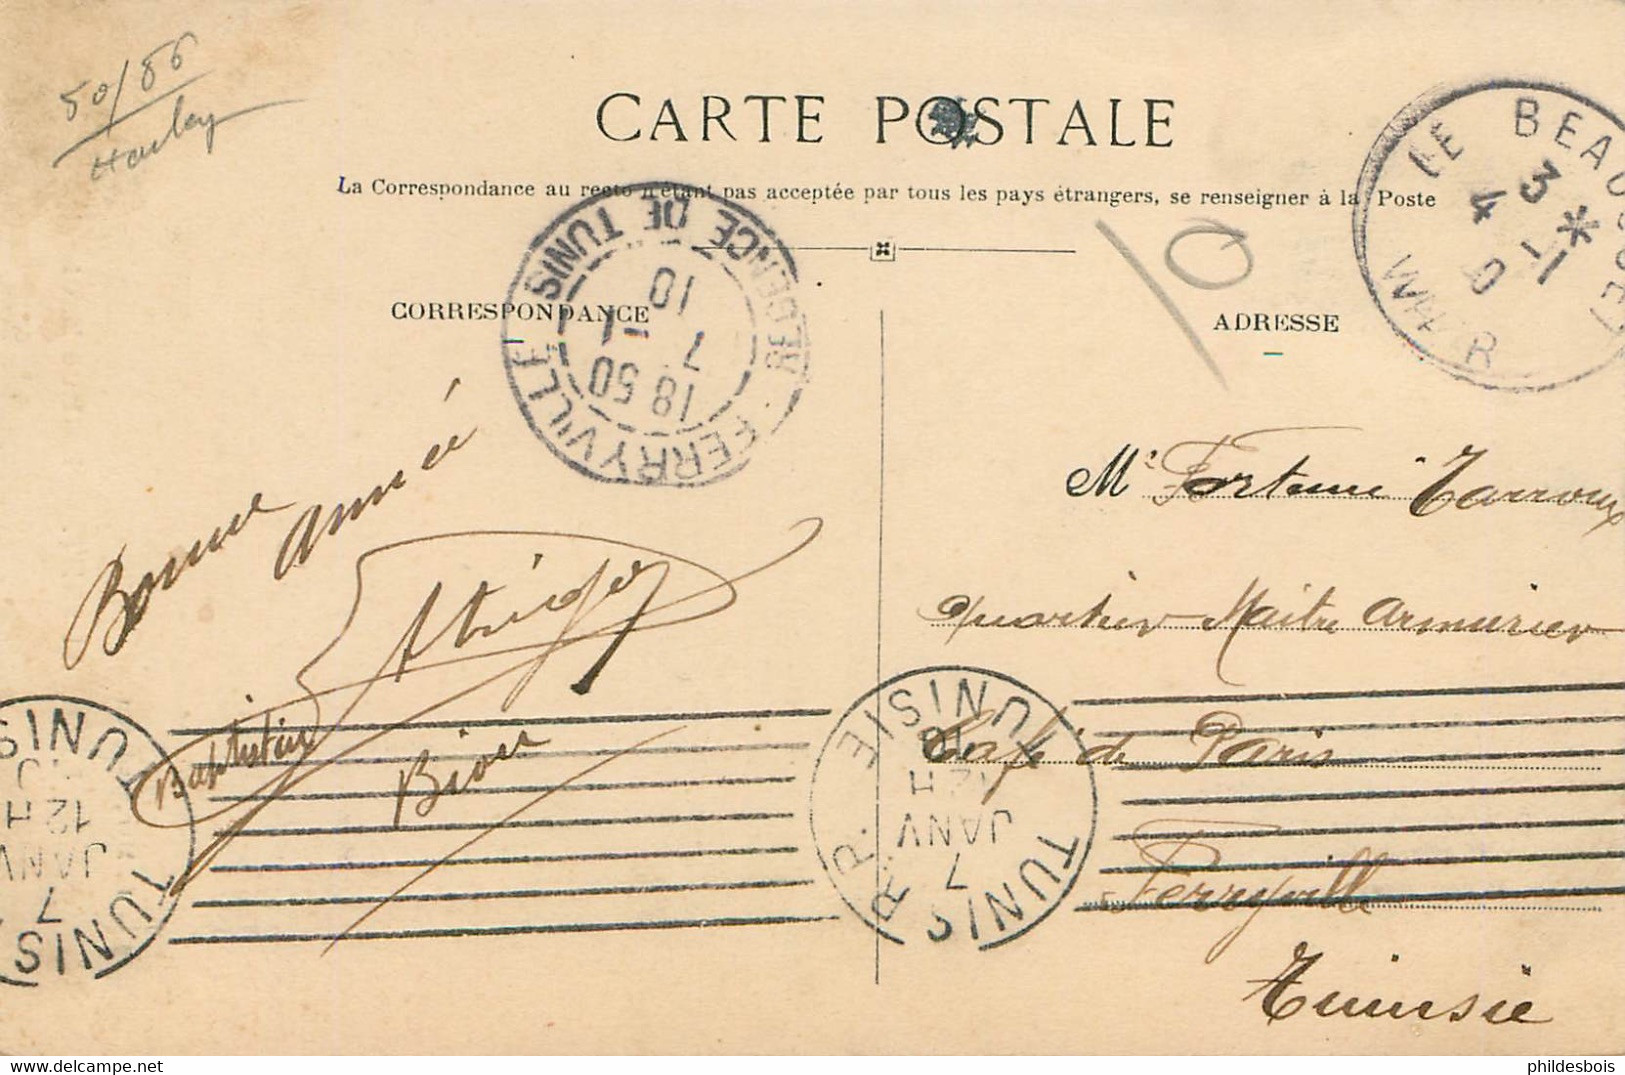 50/86
CARTE POSTALE
La Correspondance au recto n'étant pas acceptée par tous les pays étrangers, se renseigner à la Poste
LE BEAUSSET VAR
3 *
4 -1
10
REGENCE DE TUNIS
FERRYVILLE
18 50
7 -1
10
CORRESPONDANCE
ADRESSE
Bonne
année
Baptistin
Mr Fortuné Tarroux
Quartier-Maitre armurier
Café de Paris
Ferryville
Tunisie
TUNIS R.P. TUNISIE
7
JANV
12 H
10
TUNIS TUNISIE
7
JANV
12 H
10
phildesbois